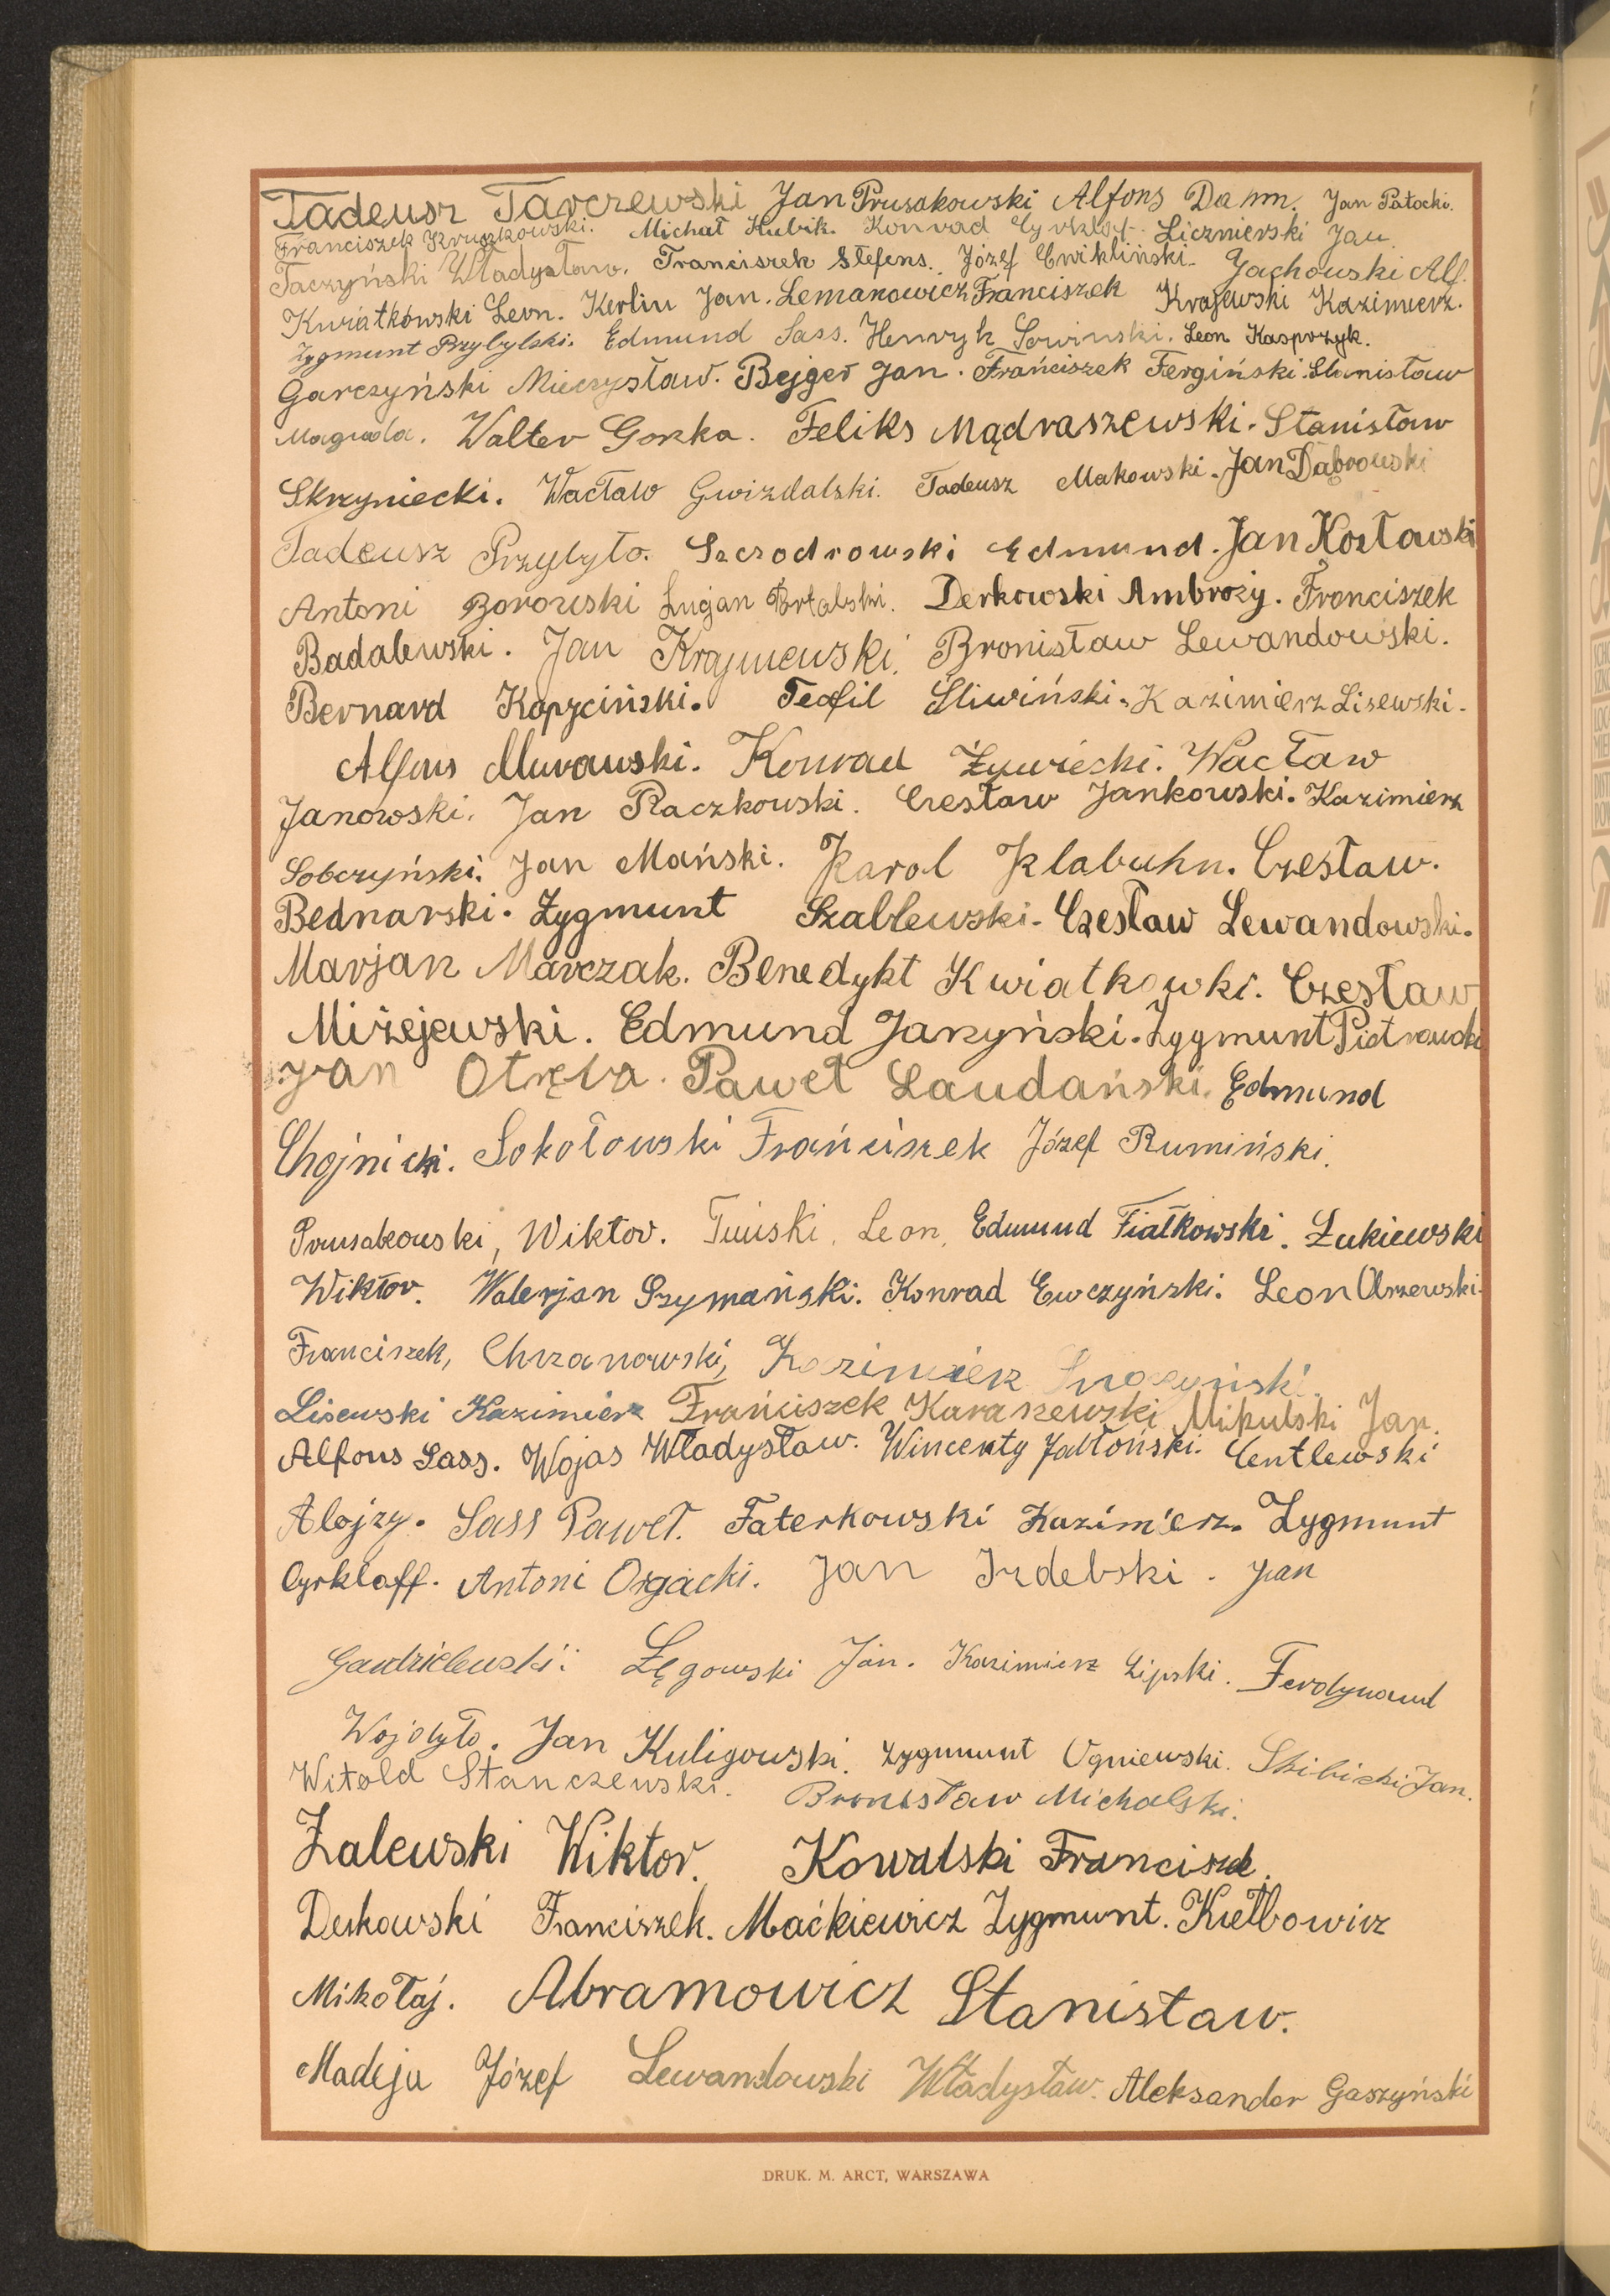 Tadeusz Tarczewski Jan Prusakowski Alfons Damm. Jan Patocki.
Franciszek Kruszkowski. Michał Kubik. Konrad Cyrklaf. Licznierski Jan.
Taczyński Władysław. Franciszek Stefens. Józef Cwikliński. Jachowski Alf.
Kwiatkówski Leon. Kerlin Jan. Lemanowicz Franciszek Krajewski Kazimierz.
Zygmunt Przybylski. Edmund Sass. Henryk Sowinski. Leon Kasprzyk.
Garczyński Mieczysław. Bejger Jan. Frańciszek Fergiński. Stanisław
Magada. Walter Gorka. Feliks Mądraszewski. Stanisław
Skrzyniecki. Wacław Gwizdalski. Tadeusz Makowski. Jan Dąbrowski
Tadeusz Przybyło. Szczodrowski Edmund. Jan Kozłowski
Antoni Borowski Lucjan Derkowski Ambroży. Franciszek
Badalewski. Jan Krajniewski. Bronisław Lewandowski.
Bernard Kopyciński. Teofil Śliwiński. Kazimierz Lisewski.
Alfons Murawski. Konrad Żywiecki. Wacław
Janowski. Jan Raczkowski. Czesław Jankowski. Kazimierz
Sobczyński. Jan Mański. Karol Klabuhn. Czesław.
Bednarski. Zygmunt Szablewski. Czesław Lewandowski.
Marjan Marczak. Benedykt Kwiatkowki. Czesław
Miżejewski. Edmund Jarzyński. Zygmunt Piotrowski
Jan Otręba. Paweł Laudański. Edmund
Chojnicki. Sokołowski Frańciszek Józef Rumiński.
Prusakowski, Wiktor. Tuiński, Leon, Edmund Fiałkowski. Żukiewski
Wiktor. Walerjan Szymański. Konrad Ewczyński. Leon Olszewski.
Franciszek, Chrzanowski, Kazimierz
Lisewski Kazimierz Frańciszek Karaszewski Mikulski Jan.
Alfons Sass. Wojas Władysław. Wincenty Jabłoński. Centlewski
Alojzy. Sass Paweł. Faterkowski Kazimierz. Zygmunt
Cyrklaff. Antoni Osgacki. Jan Izdebski. Jan
Gaudzielewski. Łęgowski Jan. Kazimierz Lipski. Ferdynand
Wojdyło. Jan Kuligowski. Zygmunt Ogniewski. Skibicki Jan.
Witold Stanczewski. Bronisław Michalski.
Zalewski Wiktor. Kowalski Franciszek.
Derkowski Franciszek. Maćkiewicz Zygmunt. Kiełbowicz
Mikołaj. Abramowicz Stanisław.
Madeja Józef Lewandowski Władysław. Aleksander Gaszyński
DRUK. M. ARCT, WARSZAWA